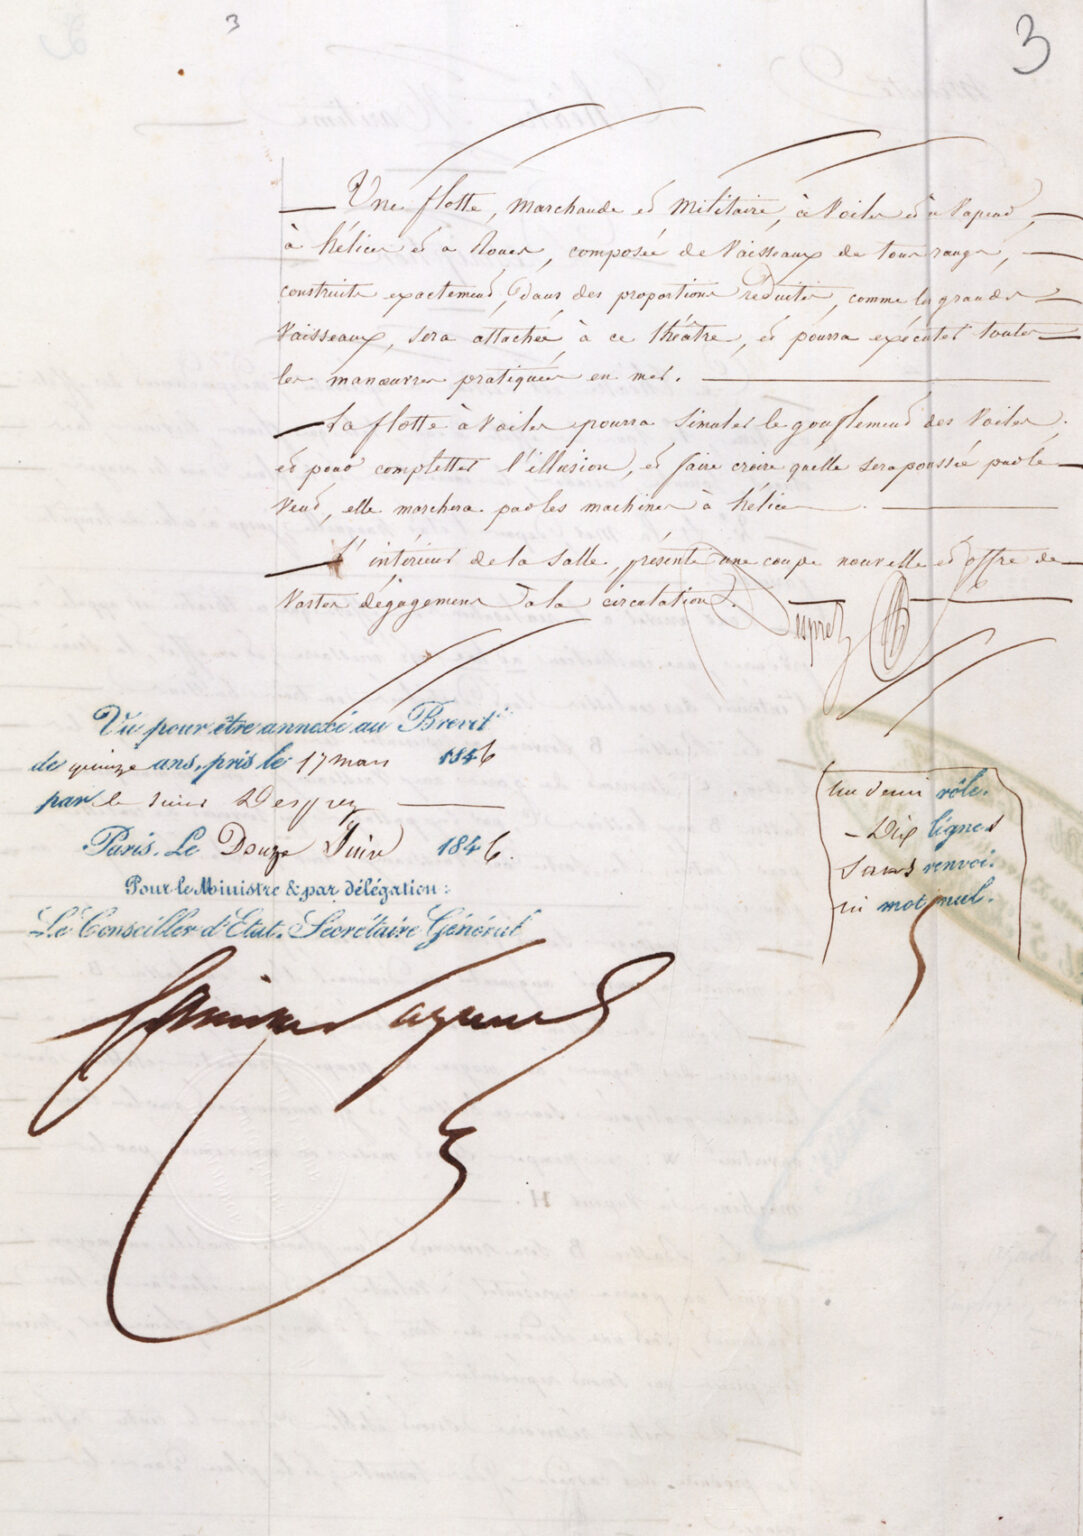 3
3
Une flotte, marchande et militaire, à Voiles et à Vapeur,
à hélices et a Roues, composée de Vaisseaux de tous rangs,
construits exactement, dans des proportions réduites, comme les grands
Vaisseaux, sera attachée à ce théâtre, et pourra exécuter toutes
les manœuvres pratiquées en mer.
La flotte à Voiles pourra simuler le gonflement des Voiles,
et pour completter l'illusion, et faire croire qu'elle sera poussée par le
Vent, elle marchera par les machines à hélices.
L'intérieur de la Salle, présente une coupe nouvelle et offre de
Vastes dégagemens à la circulation.
Desprez
Vu pour être annexé au Brevet
de quinze ans, pris le 17 mars 1846
par le Sieur Desprez
Paris, Le Douze Juin 1846.
Pour le Ministre & par délégation:
Le Conseiller d'Etat, Secrétaire Général
Un demi rôle.
Dix lignes
Sans renvoi.
ni mot nul.